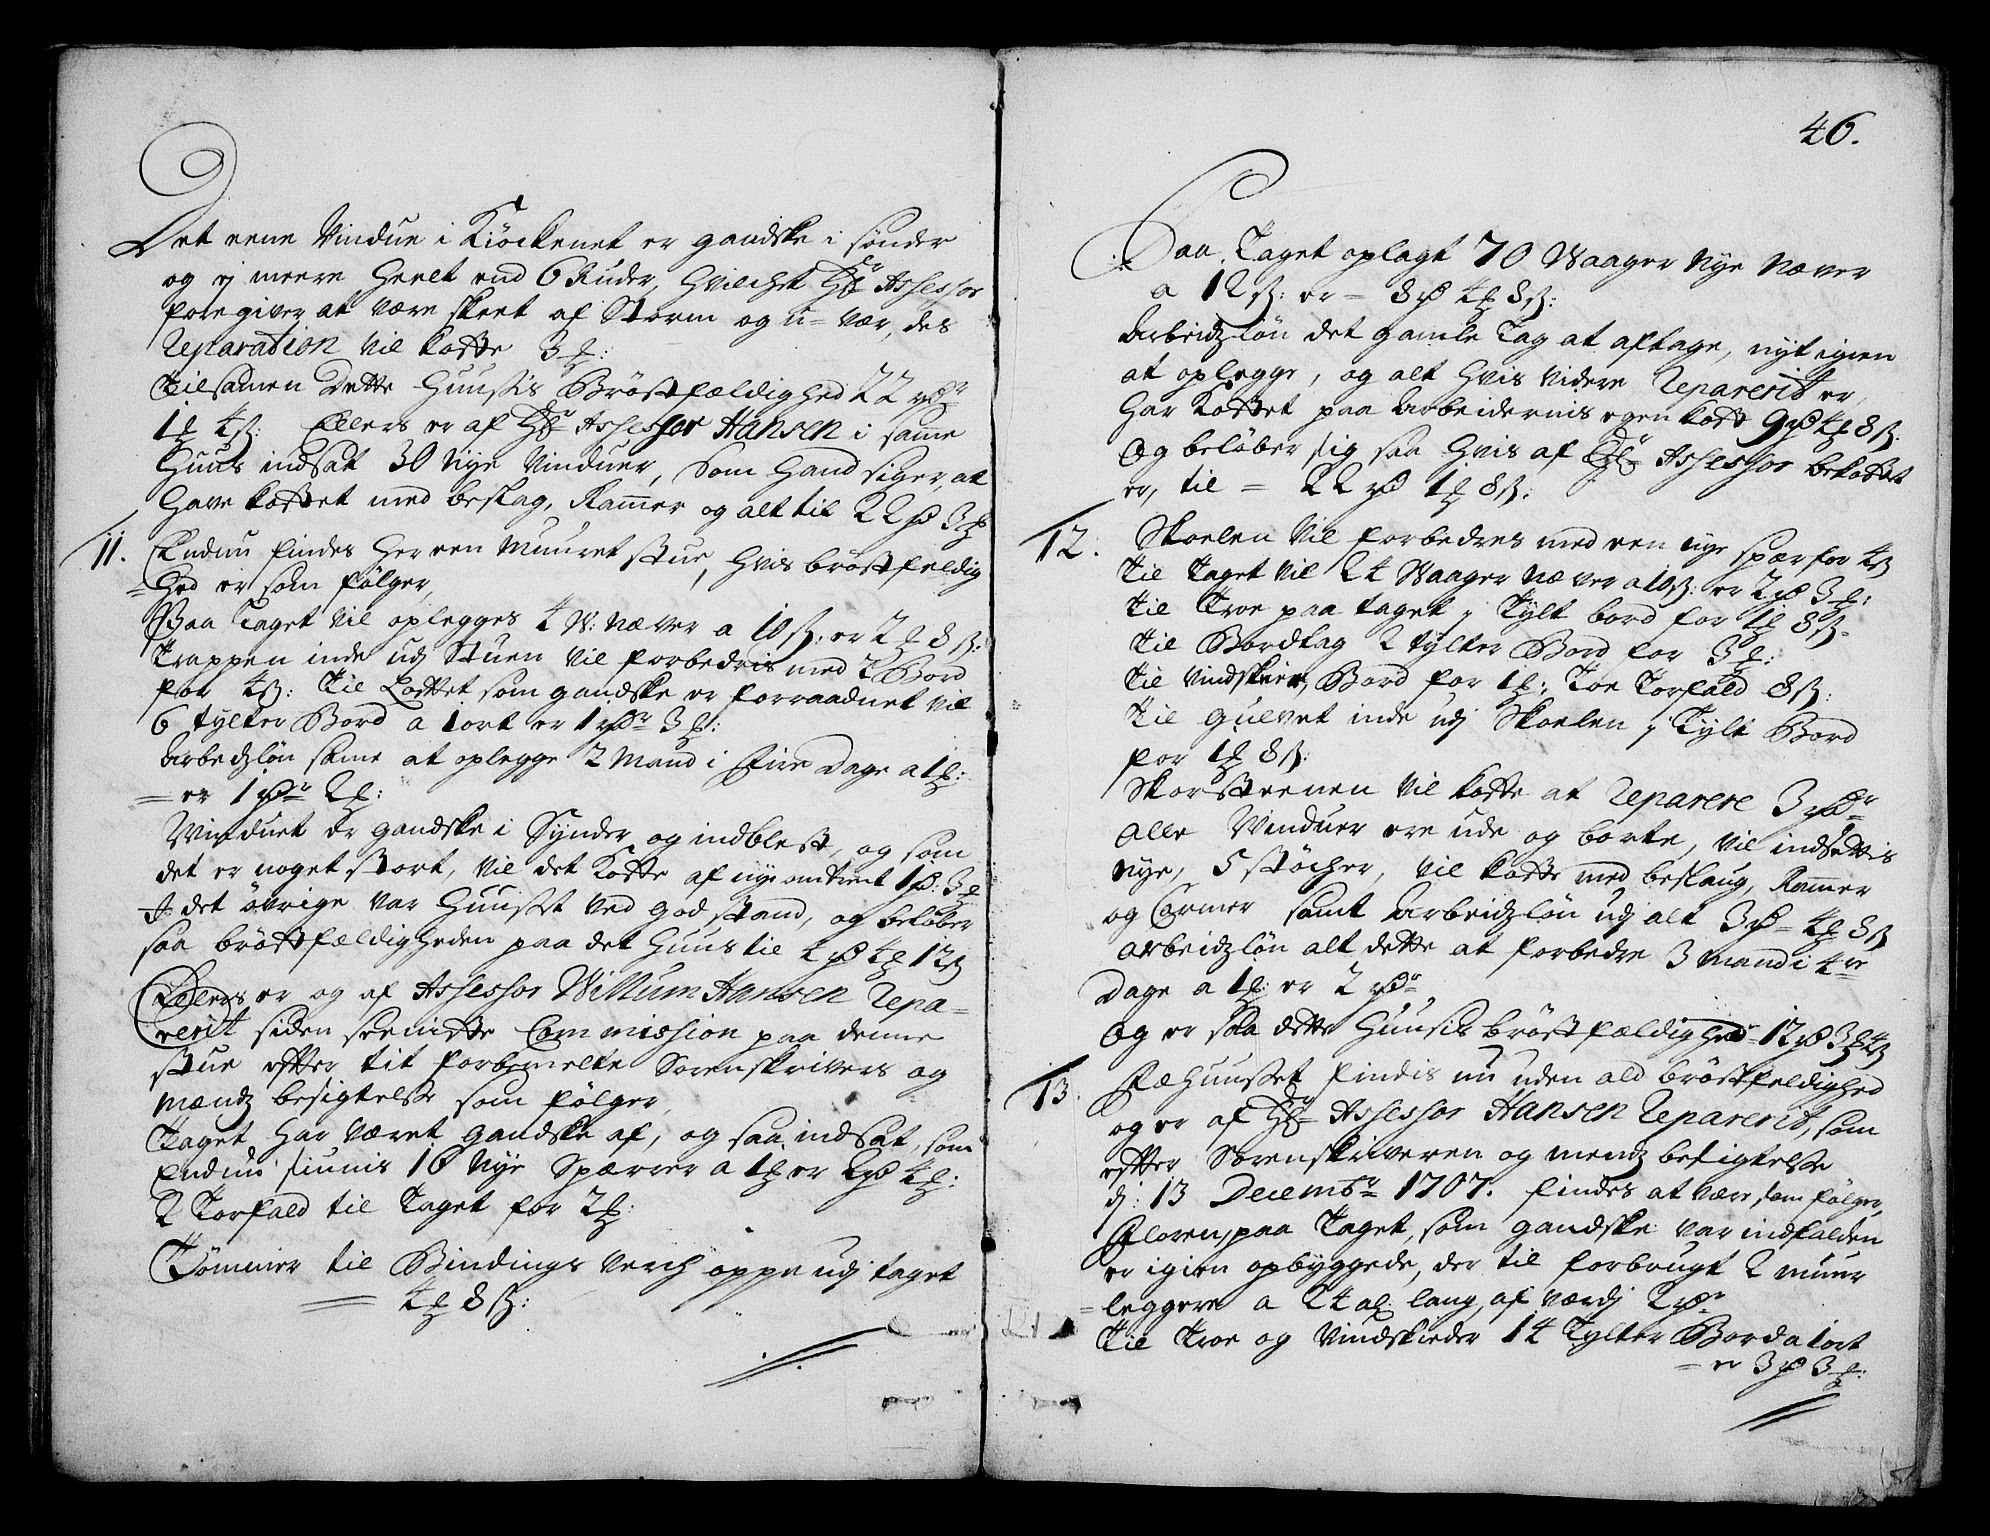 Det eene Vindue i Kiöckenet er gandske i sönder
og ej meere Heelt end 6 Ruder, Hvilchet Hr Assessor
foregiver at være skeet af Storm og u-vær, des
Reparation vil koste 3 ℔:
Tilsamen Dette Huusis Bröstfældighed 22 rdr
1 ℔ 4 ß: Ellers er af Hr Assessor Hansen i samme
Huus indsat 30 Nye Vinduer, Som Hand siger, at
Have kostet med beslag, Ramer og alt til 22 rd 3 ℔
11. Endnu findes Her een Muuret Stue, Hvis bröstfeldig
=Hed er som fölger,
Paa Taget vil oplegges 4 W: Næver a 10 ß: er 2 ℔ 8 ß:
Trappen inde udj Stuen vil forbedris med 2 Bord
for 4 ß: Til Loftet som gandske er forraadnet vil
6 tylter Bord a 1 ort er 1 rdr 3 ℔:
Arbedzlön same at oplegge 2 Mand i Fire Dage a 1 ℔:
= er 1 rdr 2 ℔:
Vinduet er gandske i Sÿnder og indblest, og som
det er noget stort, vil det Koste af nye omtrent 1 rd: 3 ℔
I det övrige var Huuset ved god stand, og belöber
saa bröstfældigheden paa det Huus til 4 rd 4 ℔ 12 ß
Ellers er og af Assessor Willum Hansen Repa=
rerit siden seeniste Commission paa denne
Stue efter tit forbemelte Sorenskrivers og
mændz besigtelse som fölger,
Taget Har Været gandske af, og saa indsat, som
Endnu siunis 16 Nye Spærrer a 1 ℔ er 2 rd 4 ℔:
2 Torfald til Taget for 2 ℔:
Tömmer til Bindings Verch oppe udj taget
= 4 ℔ 8 ß:
46.
Paa Taget oplagt 70 Waager Nye Næver
a 12 ß: er = 8 rd 4 ℔ 8 ß:
Arbeidzlön det gamle Tag at aftage, nyt igien
at oplegge, og alt Hvis videre Reparerit er,
Har Kostet paa Arbeidernis egen Kost 9 rd 4 ℔ 8 ß.
Og belöber sig saa Hvis af Hr Assessor bekostet
er, til = 22 rd 1 ℔ 8 ß:
12. Skoelen Vil forbedres med een nye spær for 4 ß
Til Taget vil 24 Waager Næver a 10 ß: er 2 rd 3 ℔:
Til Troe paa taget j Tylt bord for 1 ℔ 8 ß.
Til Bordtag 2 tylter Bord for 3 ℔:
Til Vindskier, Bord for 1 ℔: Toe Torfald 8 ß:
Til Gulvet inde udj Skoelen j Tylt Bord
for 1 ℔ 8 ß:
Skorsteenen vil koste at Reparere 3 rdr
Alle Vinduer ere ude og borte, vil indsettis
Nye, 5 stöcher, vil koste med beslaug, Ramer
og Carmer samt Arbeidzlön udj alt 3 rd = 4 ℔ 8 ß
Arbeidzlön alt dette at forbedre 3 mand i 4re
Dage a 1 ℔: er 2 rdr,
Og er saa dette Huusis bröstfældighed = 12 rd 3 ℔ 4 ß
13. Fæhuuset findis nu uden ald bröstfeldighed
og er af Hr Assessor Hansen Reparerit, som
efter Sorenskriveren og mendz besigtelse
dj: 13 Decembr 1707. findes at være som fölger,
Floren, paa Taget, som gandske var indfalden
er igien opbyggede, der til forbrugt 2 muur
=leggere a 24 al: lang, af Værdj 2 rdr
Til Troe og Vindskieder 14 Tylter Bord a 1 ort
= er 3 rd 3 ℔: